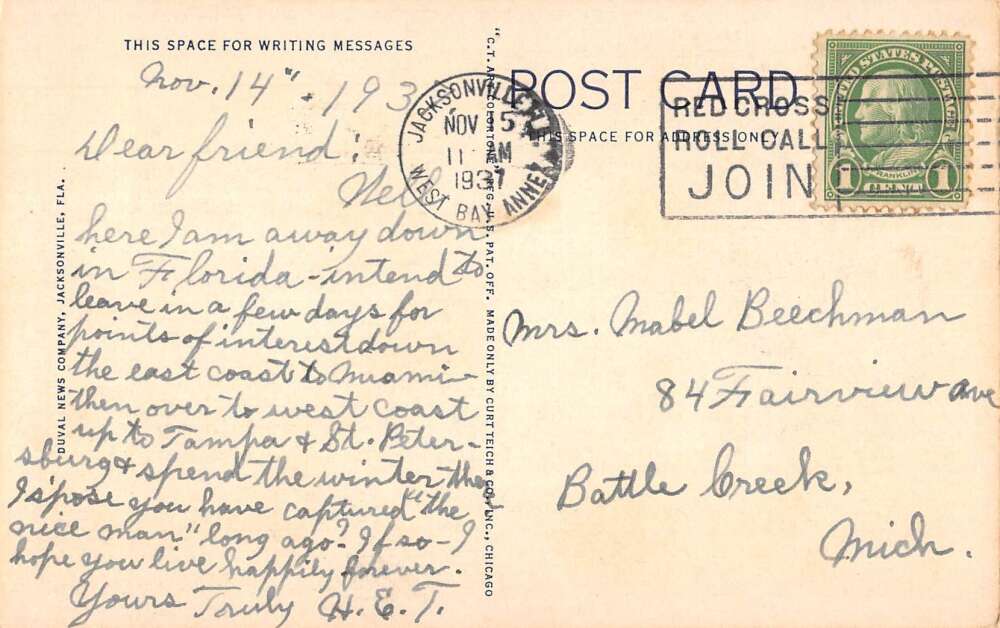 THIS SPACE FOR WRITING MESSAGES
Nov. 14" - 193
Dear friend:
Well
here I am away down
in Florida - intend to
leave in a few days for
points of interest down
the east coast to Miami -
then over to west coast
up to Tampa & St. Peter-
sburg & spend the winter
I s'pose you have captured "the
nice man" long ago? If so - I
hope you live happily forever.
Yours Truly H.E.T.
DUVAL NEWS COMPANY, JACKSONVILLE, FLA.
"C.T. ART-COLORTONE" REG. U.S. PAT. OFF. MADE ONLY BY CURT TEICH & CO., INC., CHICAGO
POST CARD
THIS SPACE FOR ADDRESS ONLY
JACKSONVILLE, FLA.
NOV 15
11 AM
1937
WEST BAY ANNEX
RED CROSS
ROLL CALL
JOIN
UNITED STATES POSTAGE
FRANKLIN
1 CENT 1
Mrs. Mabel Beechman
84 Fairview ave
Battle Creek,
Mich.